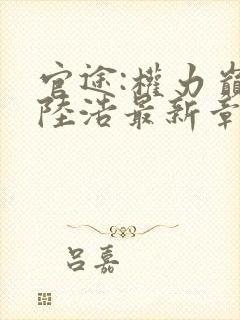 官途:權力巔
陸浩最新章
吕嘉